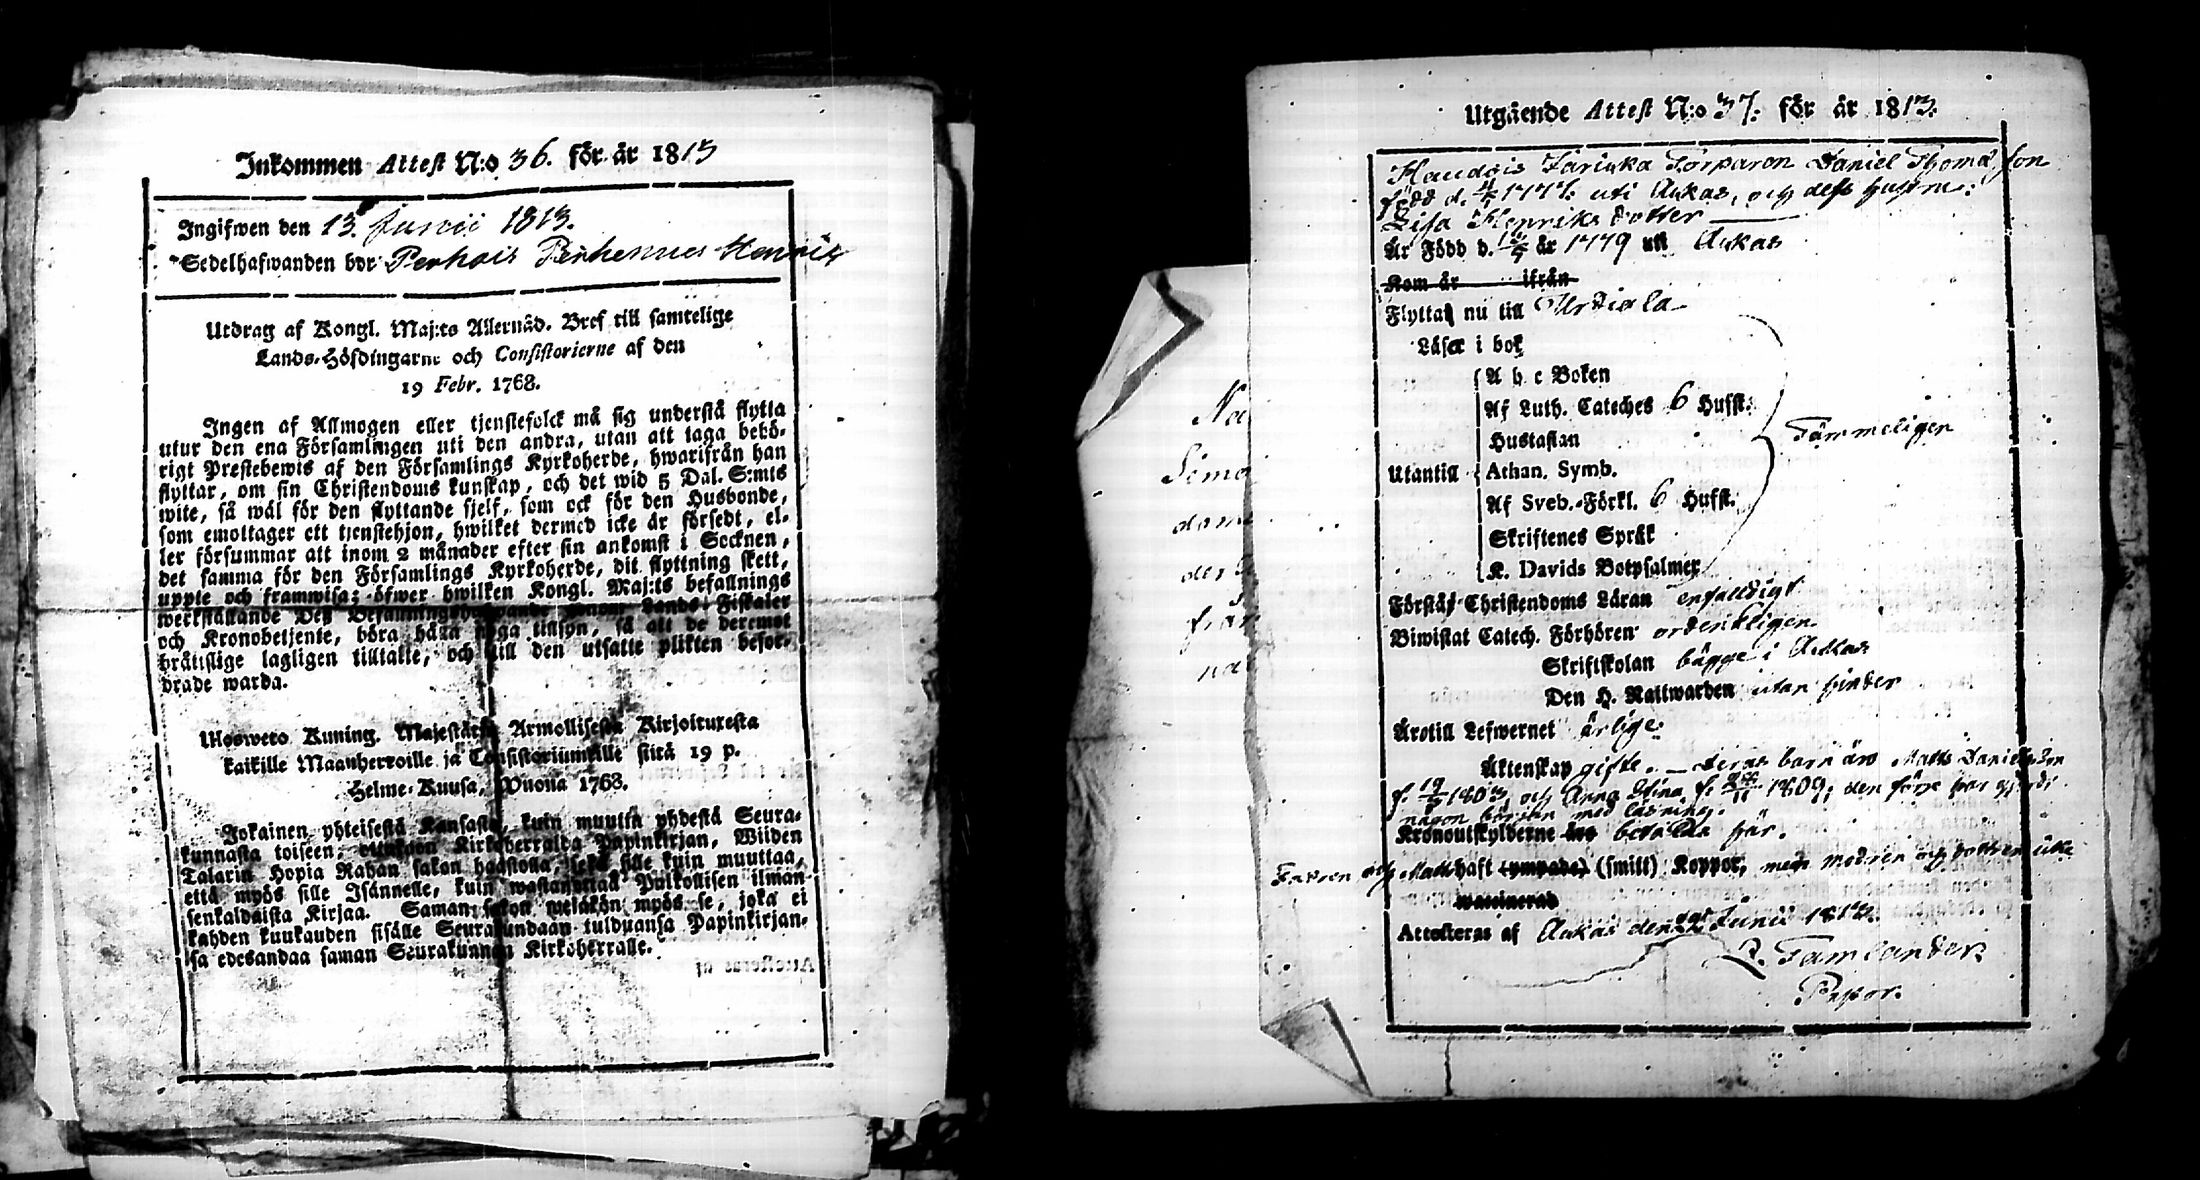 Inkommen Attest N:o 36. för år 1813
Ingifwen den 13. Junii 1813.
Sedelhafwanden bor Perhois Henrik
Utdrag af Kongl. Maj:ts Allernåd. Bref till samtelige
Lands-Höfdingarne och Consistorierne af den
19 Febr. 1768.
Ingen af Allmogen eller tjenstefolck må sig understå flytta
utur den ena Församlingen uti den andra, utan att taga behö-
rigt Prestebewis af den Församlings Kyrkoherde, hwarifrån han
flyttar, om sin Christendoms kunskap, och det wid 5 Dal. S:mts
wite, så wäl för den flyttande sjelf, som ock för den Husbonde,
som emottager ett tjenstehjon, hwilket dermed icke är försedt, el-
ler försummar att inom 2 månader efter sin ankomst i Socknen,
det samma för den Församlings Kyrkoherde, dit flyttning skett,
uppte och framwisa; öfwer hwilken Kongl. Maj:ts befallnings
werkställande Deß Befallningshafwande genom Lands-Fiskaler
och Kronobetjente, böra hafa noga tillsyn, så att de deremot
brätislige lagligen tilltalte, och till den utsatte plikten befor-
drade warda.
Ulosweto Kuning. Majestätin Armollisesta Kirjoituxesta
kaikille Maanherroille ja Consistoriumeille siitä 19 p.
Helme-Kuusa, Wuona 1768.
Jokainen yhteisestä Kansasta, kuin muutta yhdestä Seura-
kunnasta toiseen, ottakoon Kirkoherralda Papinkirjan, Wiiden
Talarin Hopia Rahan sakon haastolla, sekä sille kuin muuttaa,
että myös sille Isännelle, kuin wastanottaa Palkollisen ilman
senkaldaista Kirjaa. Saman sakon wetäkön myös se, joka ei
kahden kuukauden sisälle Seurakundaan tulduansa Papinkirjan-
sa edesandaa saman Seurakunnan Kirkoherralle.
Na
Simo
dom
der
från
na
Utgående Attest N:o 37. för år 1813.
Haudois Torparen Daniel Thomæ son
född d. 4/5 1777. uti Ackas, och dess hustru:
Lisa Henriks dotter
Är Född d. år 1779 uti Ackas
Kom år ifrån
Flyttat nu till Urdiala
Läser i bok
A b c Boken
Af Luth. Cateches 6 Hufst.
Hustaflan
Tämmeligen
Utantill Athan. Symb.
Af Sveb.-Förkl. 6 Hufst.
Skriftenes Språk
K. Davids Botpsalmer
Förstår Christendoms Läran enfalldigt
Biwistat Catech. Förhören ordentligen
Skriftskolan bägge i Ackas
Den H. Nattwarden utan hinder
Ärotill Lefwernet ärlige.
Äktenskap gifte. — deras barn äro Matts Danielsson
f. 19/2 1803 och Anna Stina f. 1809; den förre har gjordt
någon början med läsning.
Kronoutskylderne betalda här.
Fadren och Matts haft (ympade) (smitt) Koppor, men modren och dottren icke
waccinerad
Attesteras af Ackas den Junii 1813.
Tamlander.
Pastor.